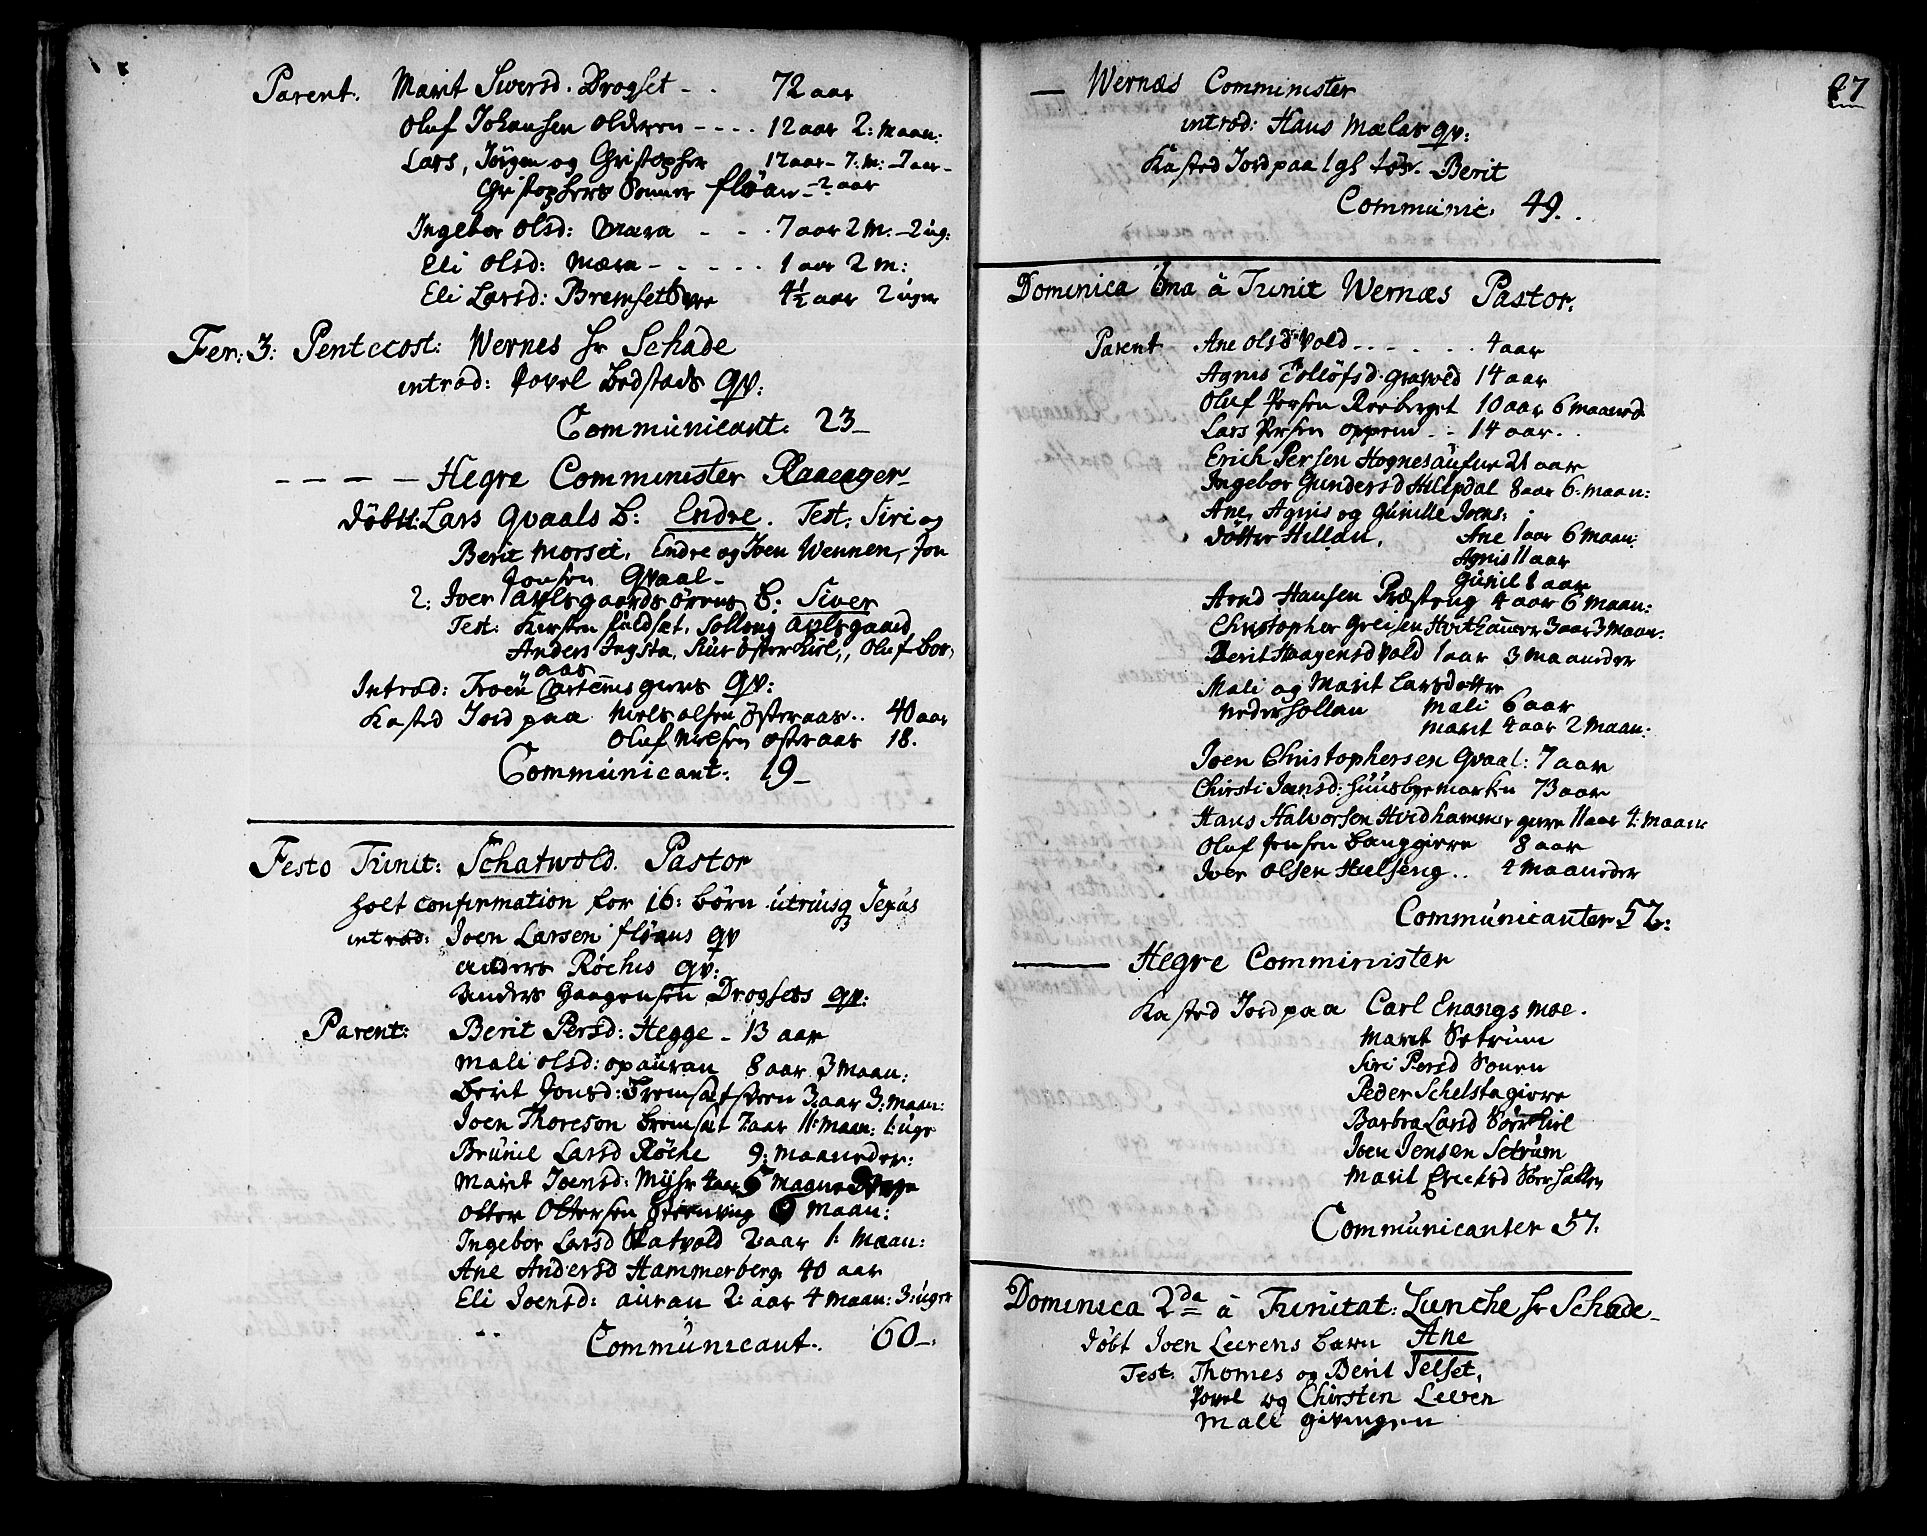 Parent. Marit Siversd. Drogset - - 72 aar
Oluf Johansen Oldren - - - - 12 aar 2: maan:
Lars, Jörgen og Christopher 12 aar - 7: m: - 7 aar -
Christophers Sönner flöan - 2 aar
Ingebor Olsd: Mæra - - - 7 aar 2 m: - 2 ug:
Eli Olsd: Mæra - - - - - 1 aar 2 m:
Eli Larsd: Bremset 4½ aar 2 uger
Fer: 3: Pentecost: Wernes Hr Schade
introd: Povel Bedstads qv:
Communicant: 23 -
- - - - Hegre Comminister Raaeager -
döbt: Lars Qvaals B: Endre. Test: Siri og
Berit Morset, Endre og Joen Wennen, Jon
Jonsen Qvaal -
2: Joen Axlsgaardsörens B: Siver
Test: Kirsten fuldset, Solloug Axlsgaard,
Anders Ingsta, Siur Österkiil, Oluf Bor,
aas
Introd: Troen Cartennsgiers qv:
Kasted Jord paa Niels Olsen Österaas.. 40 aar
Oluf Nielsen Österaas 18.
Communicant: 19 -
Festo Trinit: Schatwold. Pastor
holt confirmation for 16: börn utriusq Sexus
introd: Joen Larsen flöans qv
Anders Röches qv:
Anders Haagensen Drogsets qv:
Parent: Berit Persd: Hegge - 13 aar
Mali Olsd: opauran 8 aar 3 maan:
Berit Jonsd: Bremsæt 3: aar 3: maan:
Joen Thoreson Bremsæt 7 aar 11: maan: 1: uge
Brünil Larsd Röche 9: maaneder:
Marit Joensd: Myhr
Otter Ottersen 6 maan:
Ingebor Larsd Skatvold 2: aar 1: maan:
Ane Andersd Hammerberg 40 aar
Eli Joensd: auran 2: aar 4 maan: 3: uger
Communicant. 60 -
27
— Wernæs Comminister
introd: Hans Mælas qv:
Kasted Jord paa 1 gl: Berit
Communic: 49.
Dominica 1ma à Trinit Wernæs Pastor.
Parent Ane Olsd Vold - - - - - 4 aar
Agnis Tollöfsd. 14 aar
Oluf Persen Roeberget 10 aar 6 maaned
Lars Persen oppem - - 14 aar..
Erich Persen Hognesaufue 21 aar
Ingebor Gundersd Hillpdal 8 aar 6: maan:
Ane, Agnis og Gunille Joens:
döttr Hillan. Ane 1 aar 6 maan:
Agnis 11 aar
Gunil 8 aar
Arnd Hansen Præsteng 4 aar 6 maan:
Christopher Greisen 3 aar 3 maan:
Berit Haagensd Vold 1 aar 3 maaneder
Mali og Marit Larsdotter
Nederhollan Mali 6 aar
Marit 4 aar 2 maan:
Joen Christophersen Qvaal: 7 aar
Chirsti Joensd: Huusbyemarken 73 aar
Hans Halvorsen Hvidhammer 11 aar 4: maan:
Oluf Jensen 8 aar
Joen Olsen Hielseng.. 4 maaneder
Communicanter 52:
— Hegre Comminister
Kasted Jord paa Carl Enangsmoe.
Marit Setrum
Siri Persd Sonen
Peder Schelstagiere
Barbra Larsd
Joen Jensen Setrum
Marit Erichsd
Communicanter 57.
Dominica 2da à Trinitat: Luncke Hr Schade -
döbt Joen Leerens Barn Ane
Test: Thomes og Berit Jelset,
Povel og Chirsten Leeren
Mali givingen